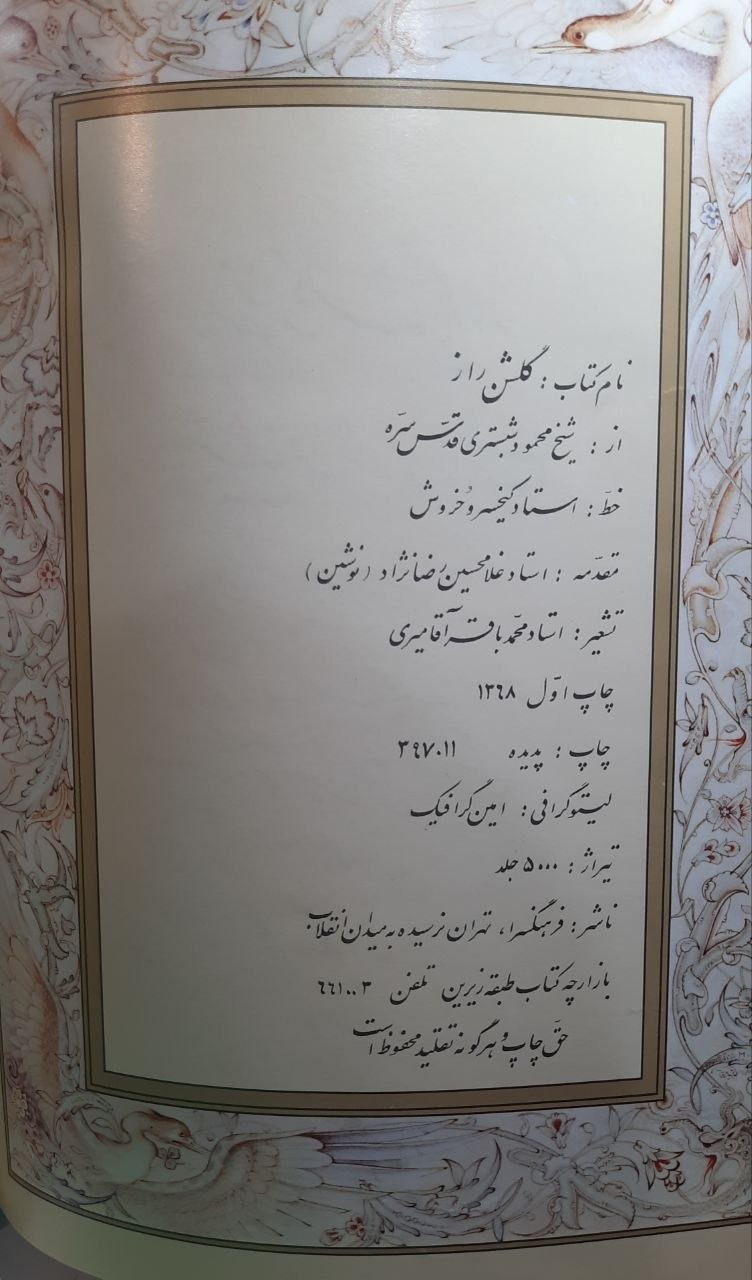 نام کتاب : گلشن راز
از : شیخ محمود شبستری قدّس سرّه
خطّ : استاد کیخسرو خروش
مقدّمه : استاد غلامحسین رضانژاد (نوشین)
تشعیر : استاد محمّد باقر آقامیری
چاپ اوّل ۱۳۶۸
چاپ : پدیده ۳۹۷۰۱۱
لیتوگرافی : امین گرافیک
تیراژ : ۵۰۰۰ جلد
ناشر : فرهنگسرا، تهران نرسیده به میدان انقلاب
بازارچه کتاب طبقه زیرین تلفن ۶۶۱۰۰۳
حقّ چاپ و هرگونه تقلید محفوظ است